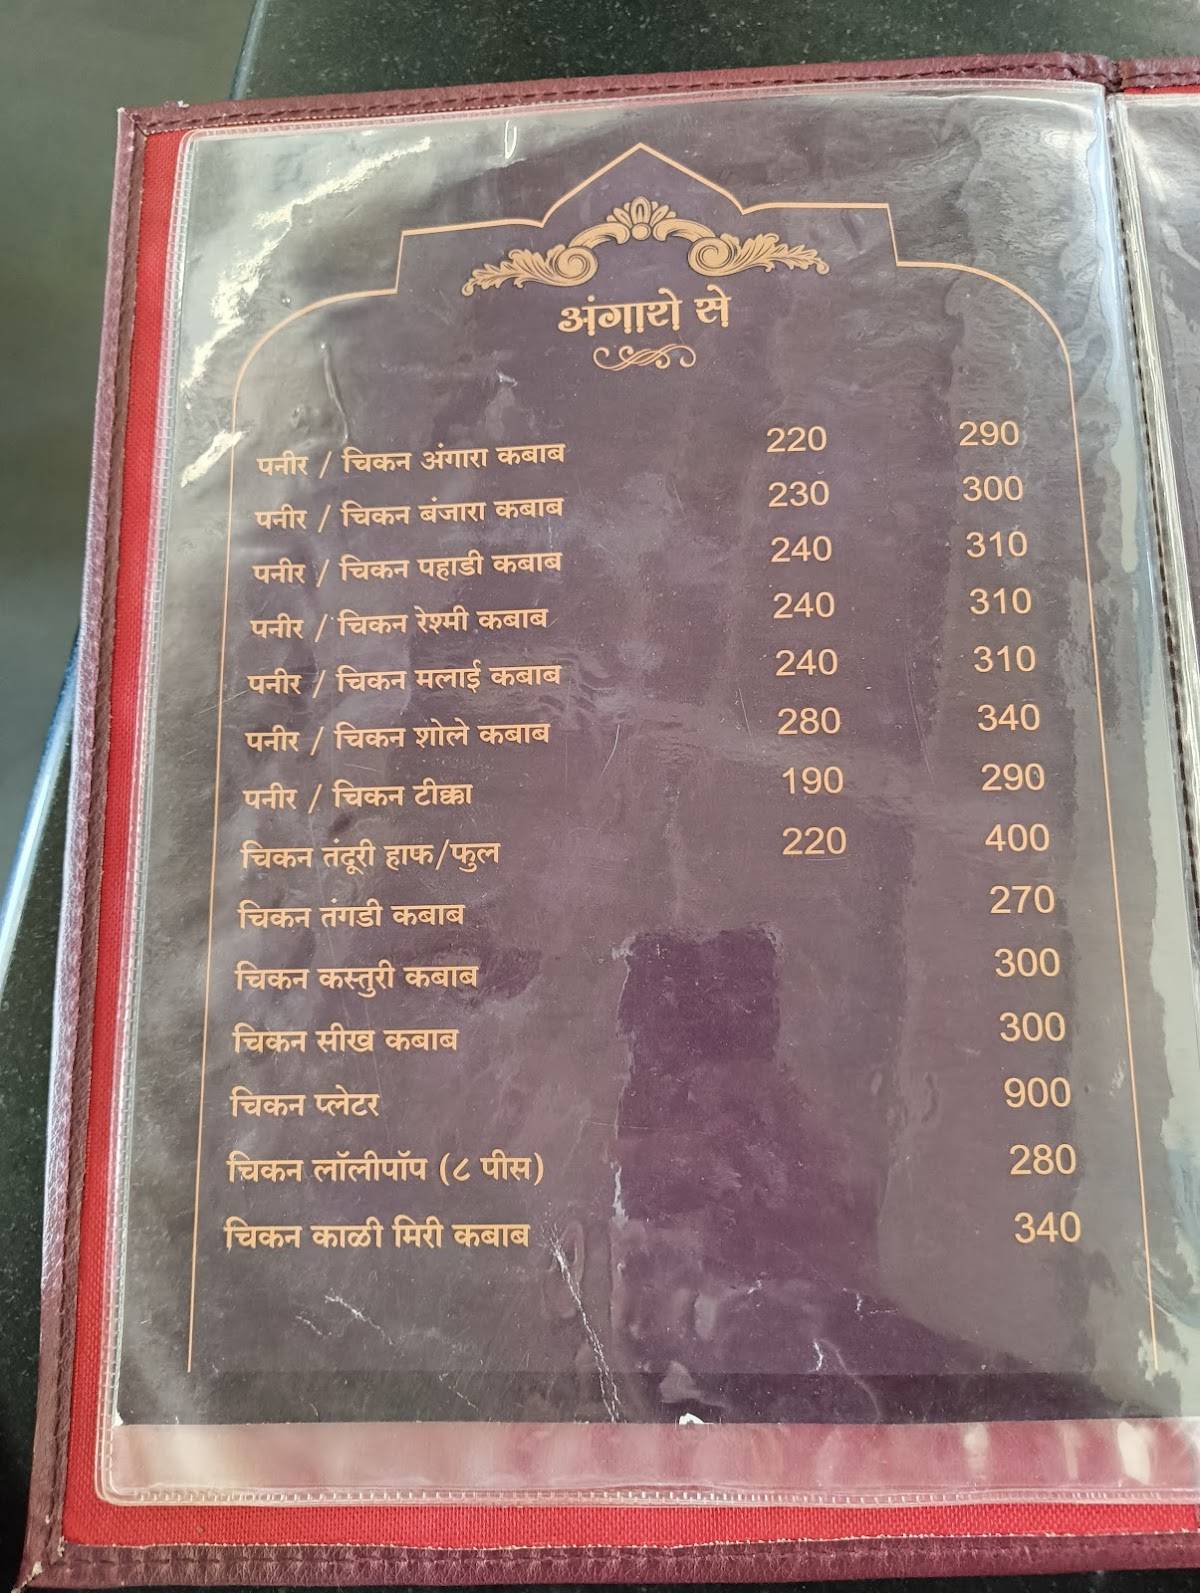 अंगारो से
पनीर / चिकन अंगारा कबाब 220 290
पनीर / चिकन बंजारा कबाब 230 300
पनीर / चिकन पहाडी कबाब 240 310
पनीर / चिकन रेश्मी कबाब 240 310
पनीर / चिकन मलाई कबाब 240 310
पनीर / चिकन शोले कबाब 280 340
पनीर / चिकन टीक्का 190 290
चिकन तंदूरी हाफ/फुल 220 400
चिकन तंगडी कबाब 270
चिकन कस्तुरी कबाब 300
चिकन सीख कबाब 300
चिकन प्लेटर 900
चिकन लॉलीपॉप (८ पीस) 280
चिकन काळी मिरी कबाब 340